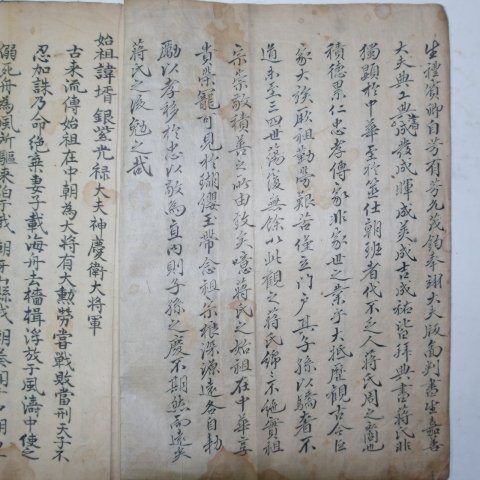 生禮賓卿自芳有芳允茂鈞奉翊大夫版圖判書生嘉善
大夫典工典成發成暉成美成吉成祐皆拜典書蔣氏非
獨顯於中華至於筮仕朝班者代不乏人蔣氏周之裔也
積德累仁忠孝傳家非家世之業乎大抵歷觀古今巨
家大族厥祖勤勞艱苦僅立門戶其子孫以驕奢不
道未至三四世蕩覆無餘以此觀之蔣氏綿綿不絶實祖
宗崇敬積善之所由致矣噫蔣氏之始祖在中華享
貴榮寵可見於纓玉帶念祖宗根深源遠各自勅
勵以孝移於忠以敬爲直內則子孫之慶不期然而遠矣
蔣氏之後勉之哉
始祖諱壻銀紫光祿大夫神慶衛大將軍
古來流傳始祖在中朝爲大將有大勳勞當戰敗當刑天子不
忍加誅乃命絶棄妻子載海舟去檣楫浮放于風濤中使之
溺死舟爲風所驅來泊于我